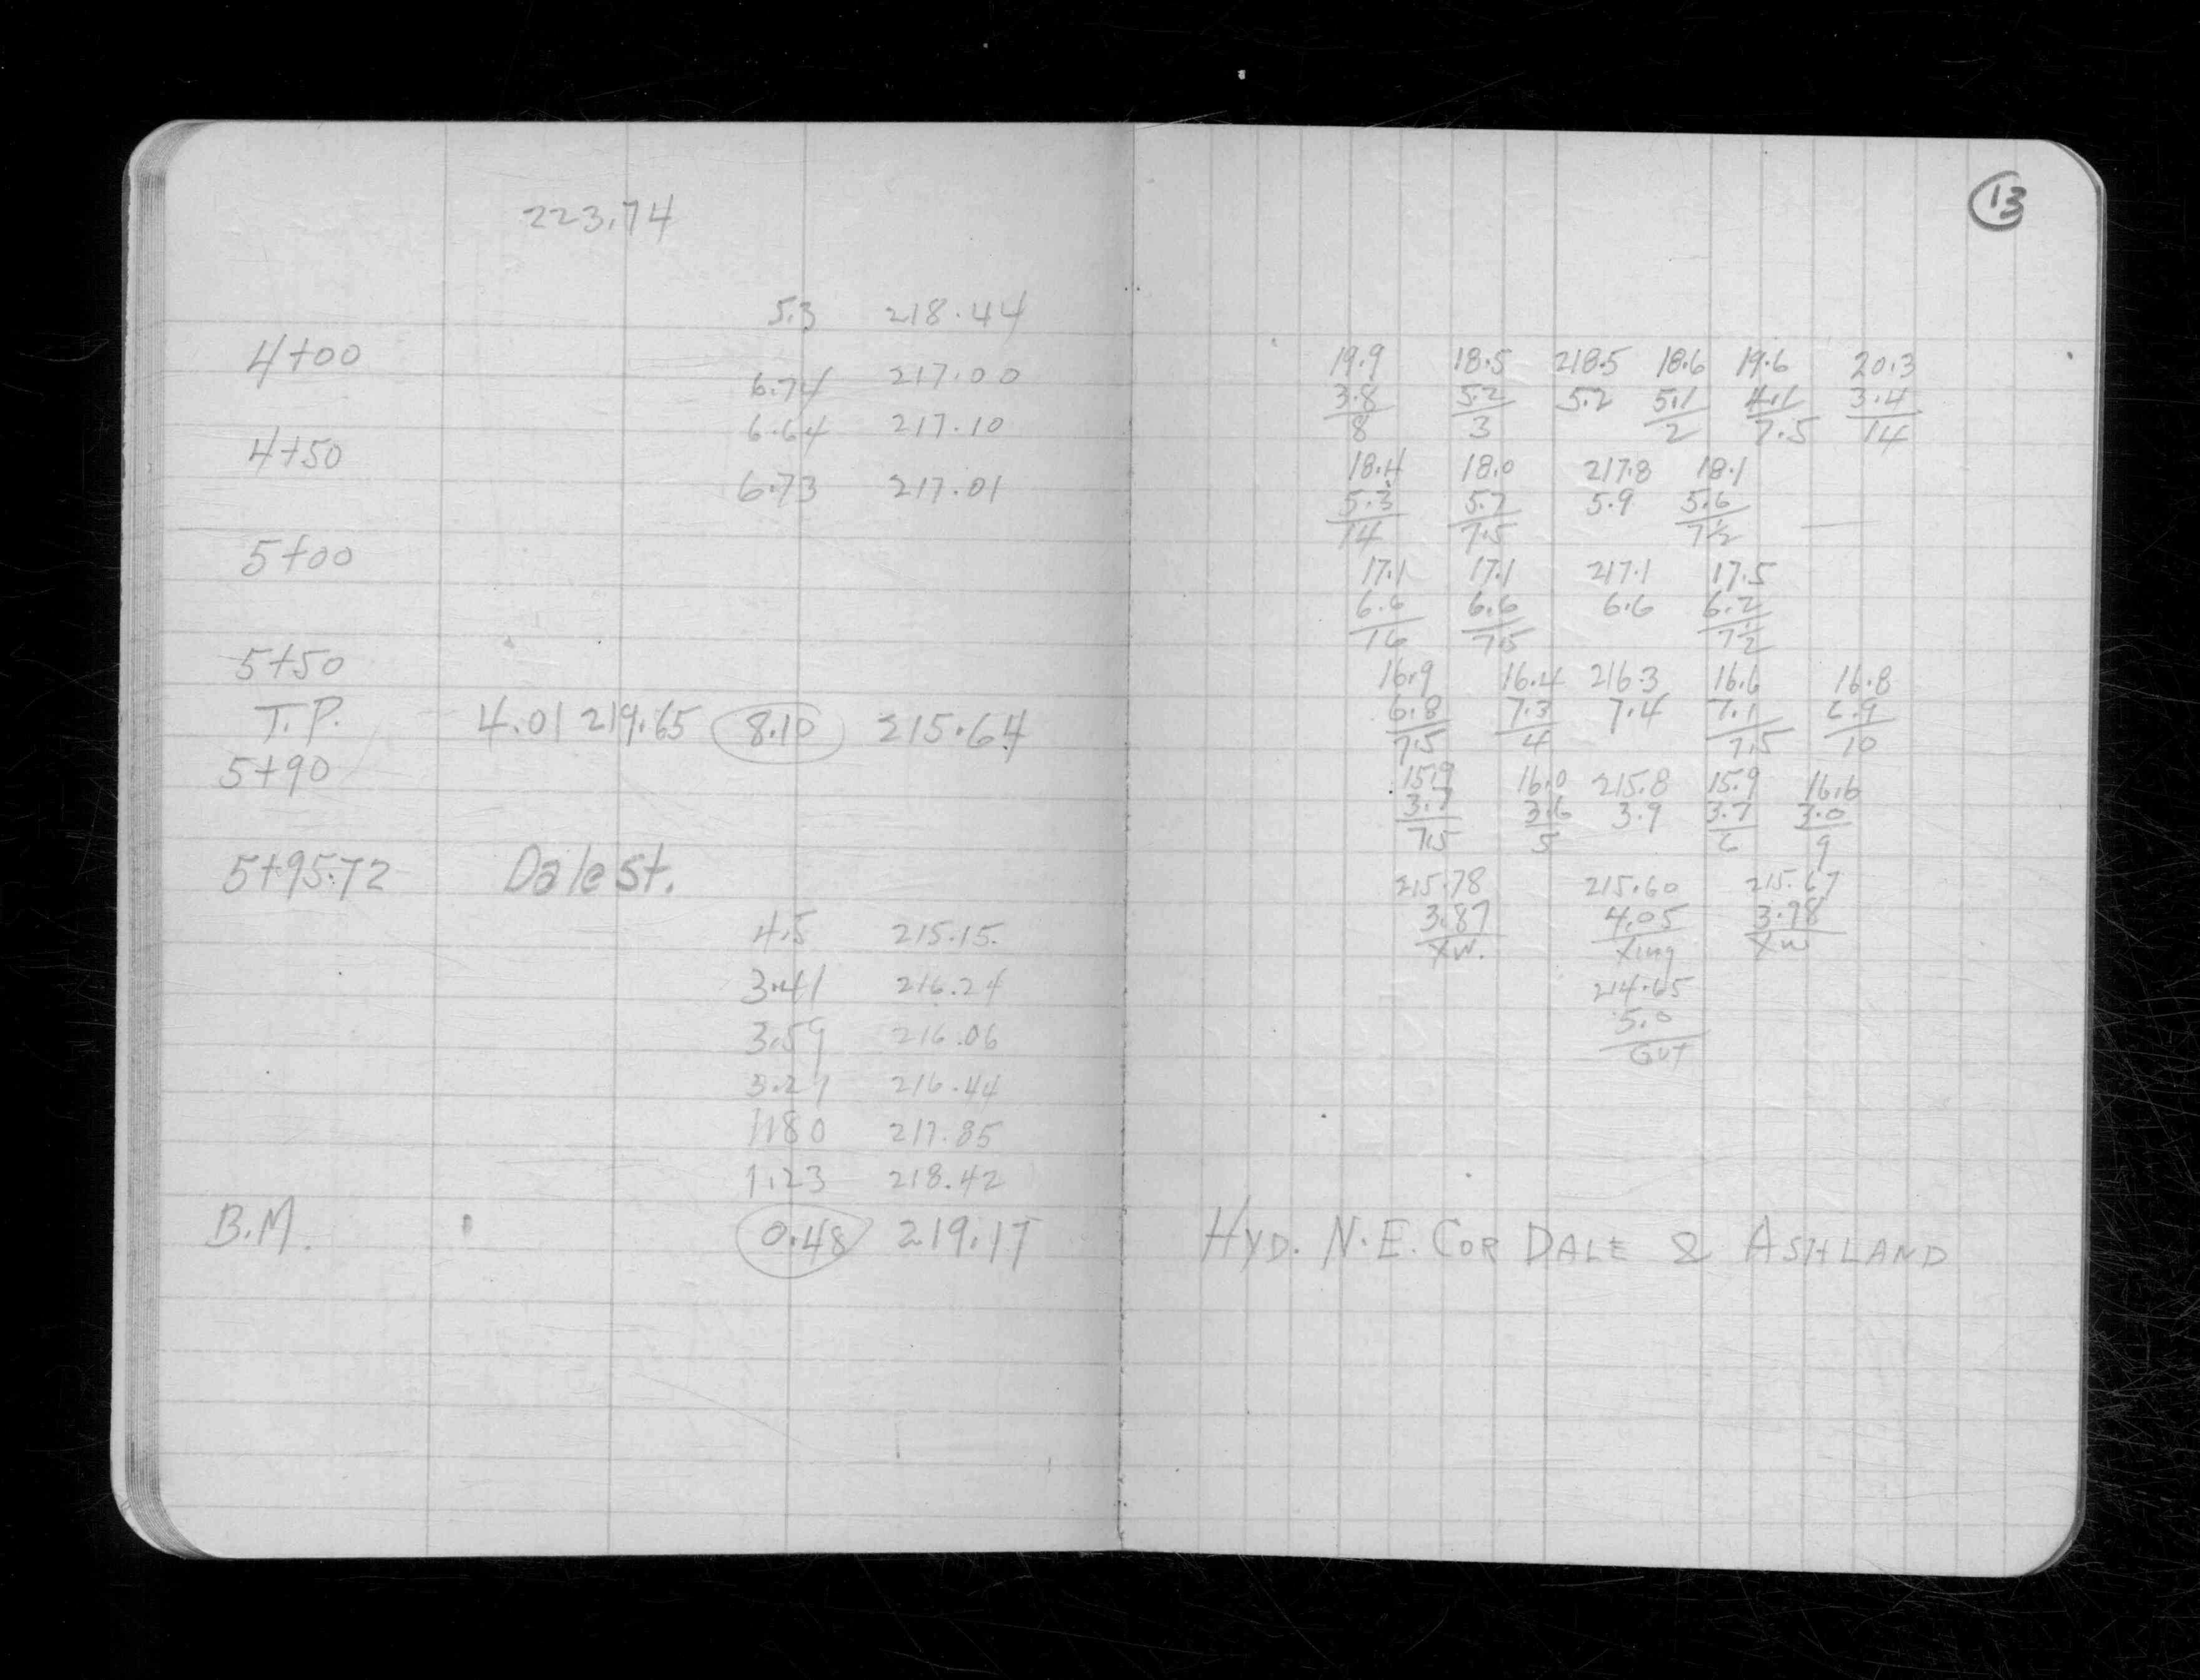 13
223.74
5.3 218.44
4+00
6.74 217.00
6.64 217.10
4+50
6.73 217.01
5+00
5+50
T.P. 4.01 219.65 8.10 215.64
5+90
5+95.72 Dale St.
4.5 215.15
3.41 216.24
3.59 216.06
216.44
1.80 217.85
1.23 218.42
B.M. 0.48 219.17
19.9 18.5 218.5 18.6 19.6 20.3
3.8 5.2 5.2 5.1 4.1 3.4
8 3 2 7.5 14
18.4 18.0 217.8 18.1
5.3 5.7 5.9 5.6
14 7.5 7½
17.1 17.1 217.1 17.5
6.6 6.6 6.6 6.2
16 7.5 7½
16.9 16.4 216.3 16.6 16.8
6.8 7.3 7.4 7.1 6.9
7.5 4 7.5 10
15.9 16.0 215.8 15.9 16.6
3.7 3.6 3.9 3.7 3.0
7.5 5 6 9
215.78 215.60 215.67
3.87 4.05 3.98
XW. Xing XW
214.65
5.0
GUT
HYD. N.E. COR DALE & ASHLAND